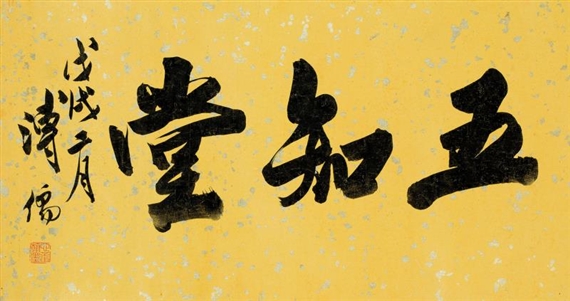 五知堂
戊戌二月
溥儒